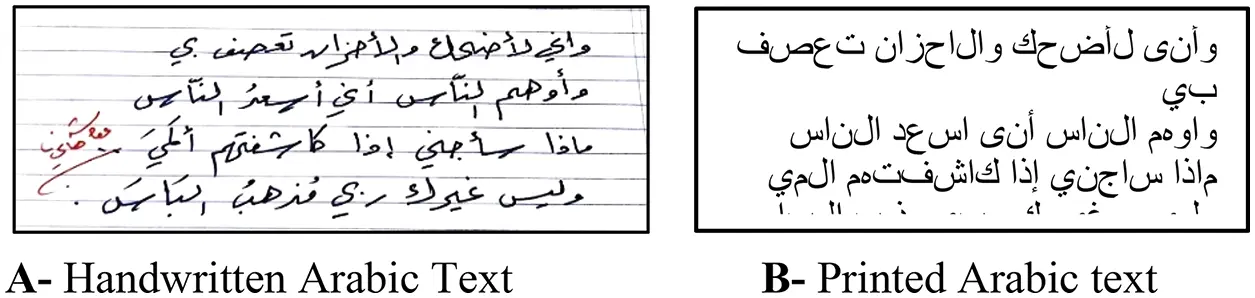 وإني لأضحك والأحزان تعصف بي
وأوهم النّاس أني أسعدُ النّاس
ماذا سأجني إذا كاشفتهم ألمي
وليس غيرك ربي مُذهبُ البَاسَ .
A- Handwritten Arabic Text
وأنى لأضحك والاحزان تعصف
بي
واوهم الناس أنى اسعد الناس
ماذا ساجني إذا كاشفتهم المي
B- Printed Arabic text